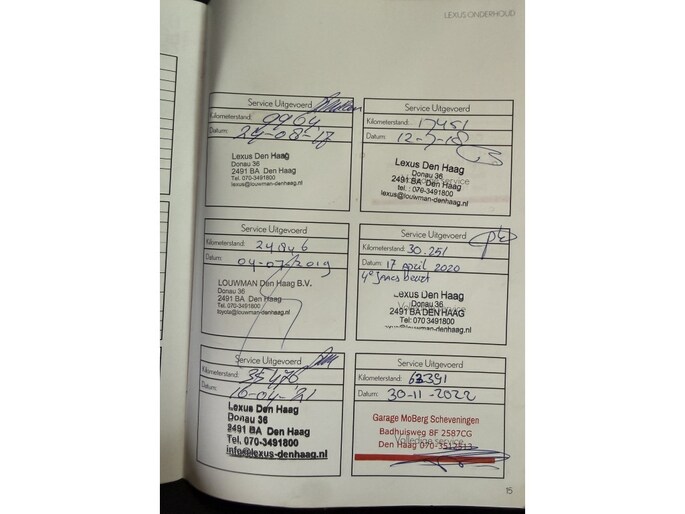 LEXUS ONDERHOUD
Service Uitgevoerd
Kilometerstand: 9964
Datum: 29-08-17
Lexus Den Haag
Donau 36
2491 BA Den Haag
Tel. 070-3491800
lexus@louwman-denhaag.nl
Service Uitgevoerd
Kilometerstand: 17451
Datum: 12-7-18
Lexus Den Haag
Donau 36
2491 BA Den Haag
Volledige service
tel. : 070-3491800
lexus@louwman-denhaag.nl
Service Uitgevoerd
Kilometerstand: 24846
Datum: 04-07-2019
LOUWMAN Den Haag B.V.
Donau 36
2491 BA Den Haag
Tel. 070-3491800
toyota@louwman-denhaag.nl
Service Uitgevoerd
Kilometerstand: 30.251
Datum: 17 april 2020
Lexus Den Haag
Donau 36
2491 BA DEN HAAG
Volledige service
Tel: 070 3491800
Service Uitgevoerd
Kilometerstand: 35476
Datum: 16-04-'21
Lexus Den Haag
Donau 36
2491 BA Den Haag
Tel. 070-3491800
info@lexus-denhaag.nl
Service Uitgevoerd
Kilometerstand: 63391
Datum: 30-11-2022
Garage MoBerg Scheveningen
Badhuisweg 8F 2587CG
Volledige service
Den Haag 070-3512513
15